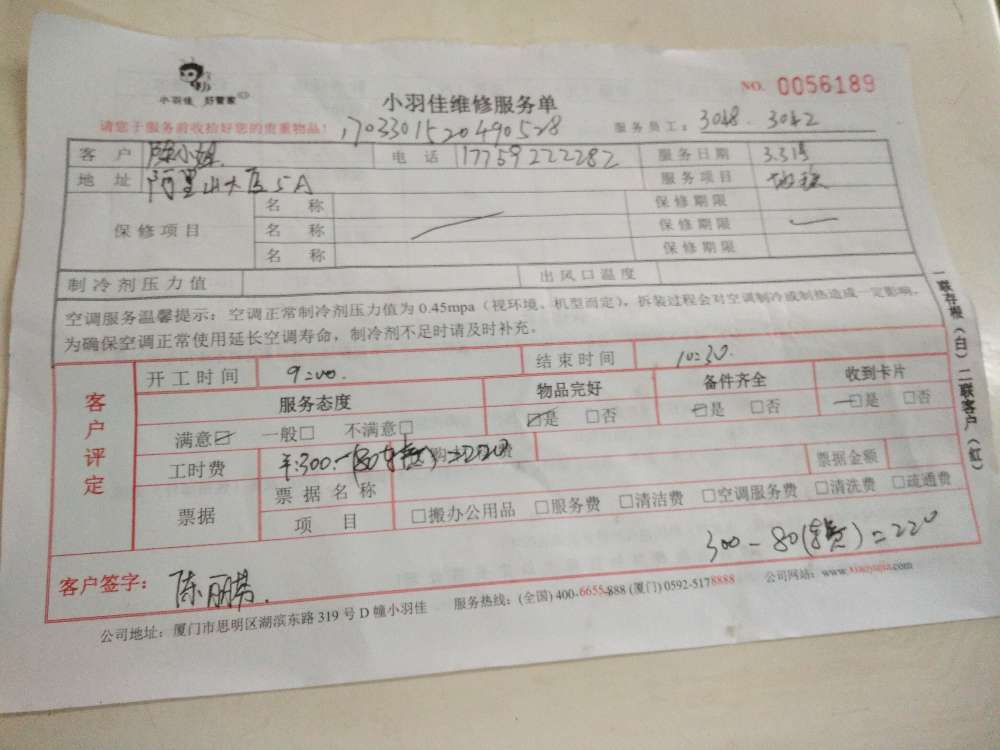 小羽佳 好管家
NO. 0056189
小羽佳维修服务单
请您于服务前收拾好您的贵重物品！ 1703301520490528 服务员工： 3048 . 3042
客户 陈小姐 电话 17759222282 服务日期 3.31号
地址 阿里山大厦5A 服务项目
保修项目 名称 保修期限
名称 保修期限
名称 保修期限
制冷剂压力值 出风口温度
空调服务温馨提示：空调正常制冷剂压力值为 0.45mpa（视环境、机型而定），拆装过程会对空调制冷或制热造成一定影响。
为确保空调正常使用延长空调寿命，制冷剂不足时请及时补充。
客户评定 开工时间 9:00. 结束时间 10:30.
服务态度 物品完好 备件齐全 收到卡片
满意☑ 一般□ 不满意□ ☑是 □否 ☑是 □否 ☑是 □否
工时费 ¥:300.-180 =220 费 票据金额
票据 票据名称
项目 □搬办公用品 □服务费 □清洁费 □空调服务费 □清洗费 □疏通费
300-80( )=220
客户签字：
公司地址：厦门市思明区湖滨东路 319 号 D 幢小羽佳 服务热线：(全国) 400-6655-888 (厦门) 0592-5178888 公司网站：www.xiaoyujia.com
一联存根（白）二联客户（红）